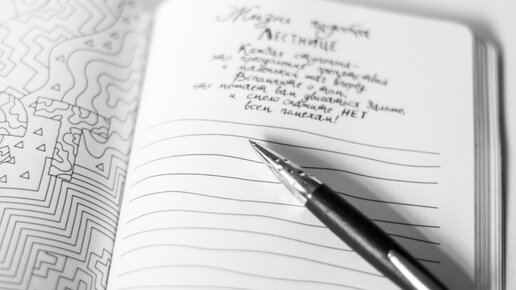 Жизнь подобна
ЛЕСТНИЦЕ
Каждая ступенька –
это преодоление препятствия
и маленький шаг вперёд.
Вспомните о том,
что мешает вам двигаться дальше,
и смело скажите НЕТ
всем помехам!